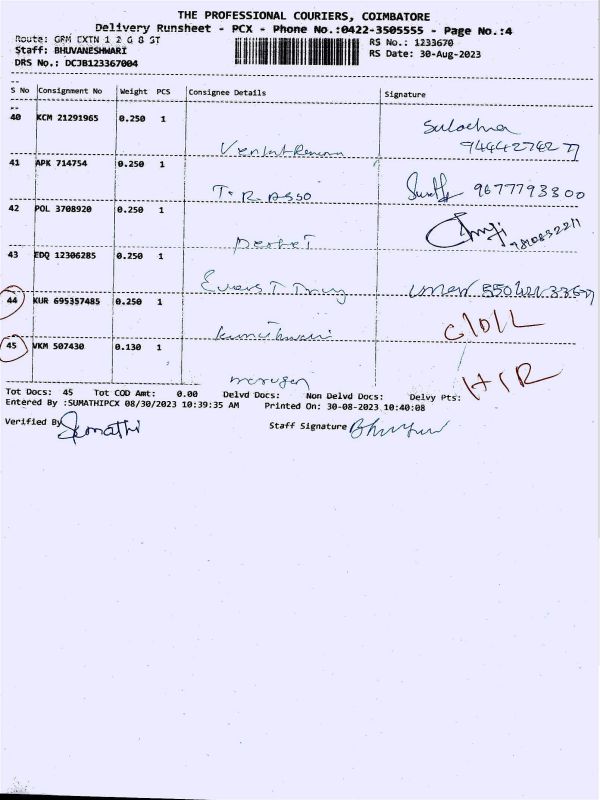 THE PROFESSIONAL COURIERS, COIMBATORE
Delivery Runsheet - PCX - Phone No.:0422-3505555 - Page No.:4
Route: GRM EXTN 1 2 G 8 ST
RS No.: 1233670
Staff: BHUVANESHWARI
RS Date: 30-Aug-2023
DRS No.: DCJB123367004
S No Consignment No Weight PCS Consignee Details Signature
40 KCM 21291965 0.250 1
Sulochna
9444274277
41 APK 714754 0.250 1
T.R. Asso 9677793300
42 POL 3708920 0.250 1
43 EDQ 12306285 0.250 1
44 KUR 695357485 0.250 1
C/D/L
45 VKM 507430 0.130 1
murugan
H/R
Tot Docs: 45 Tot COD Amt: 0.00 Delvd Docs: Non Delvd Docs: Delvy Pts:
Entered By :SUMATHIPCX 08/30/2023 10:39:35 AM Printed On: 30-08-2023 10:40:08
Verified By Sumathi Staff Signature